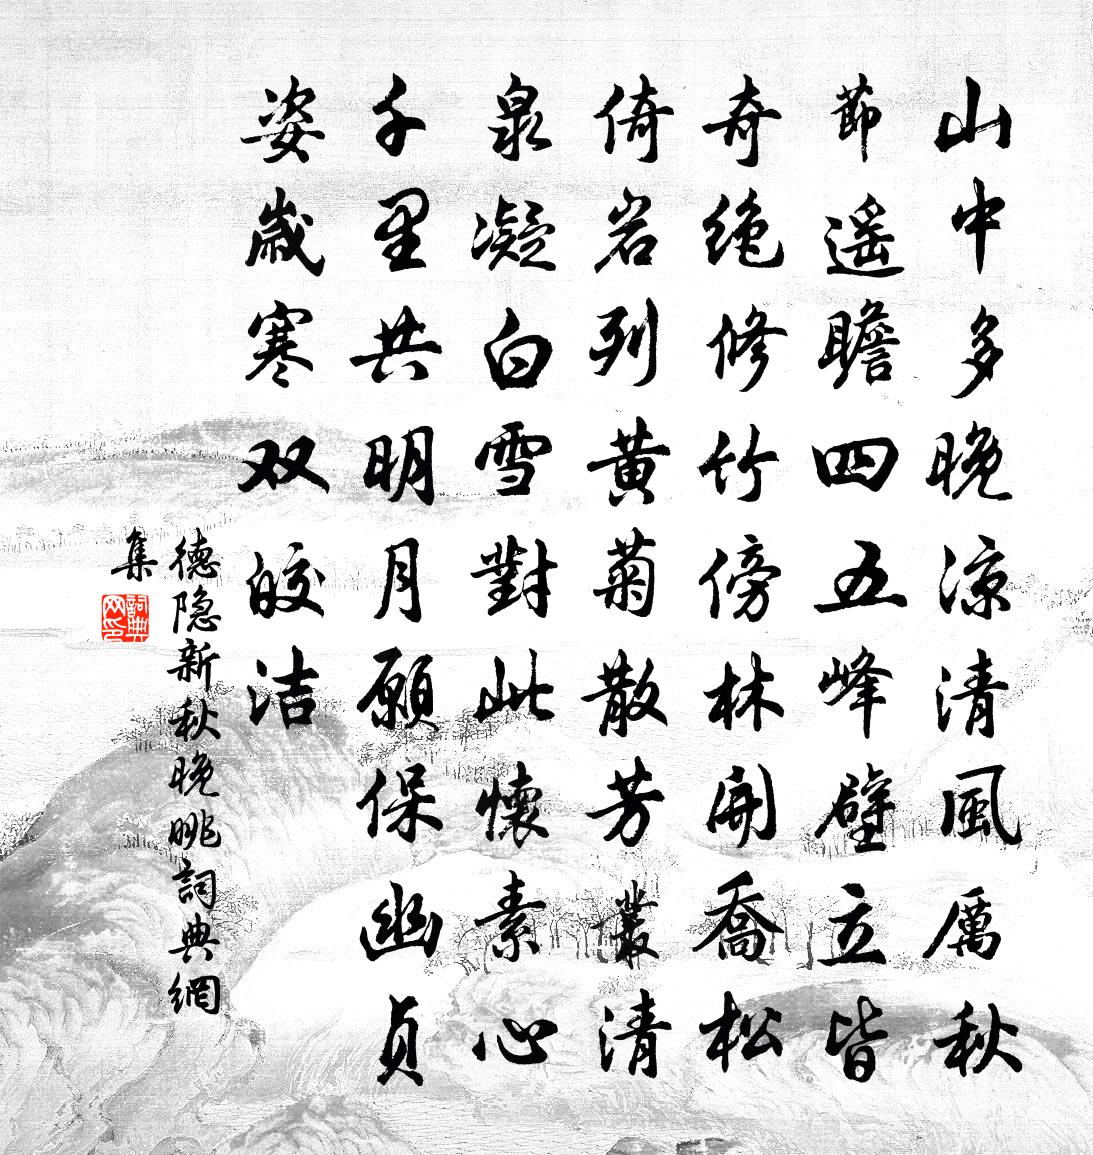 山中多晚凉清風厲秋
節遥瞻四五峰壁立皆
奇绝修竹傍林開喬松
倚岩列黄菊散芳叢清
泉凝白雪對此懷素心
千里共明月願保幽贞
姿歲寒双皎洁
德隐新秋晚眺詞典網
集
詞典网印